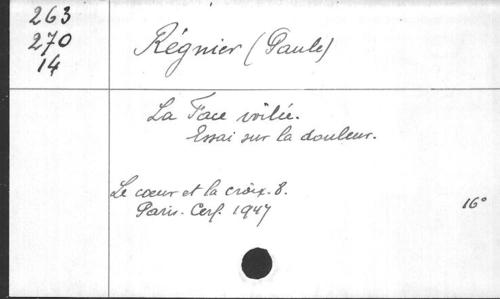 263
270
14
Régnier (Paule)
La Face voilée.
Essai sur la douleur.
Le cœur et la croix. 8.
Paris. Cerf. 1947
16°